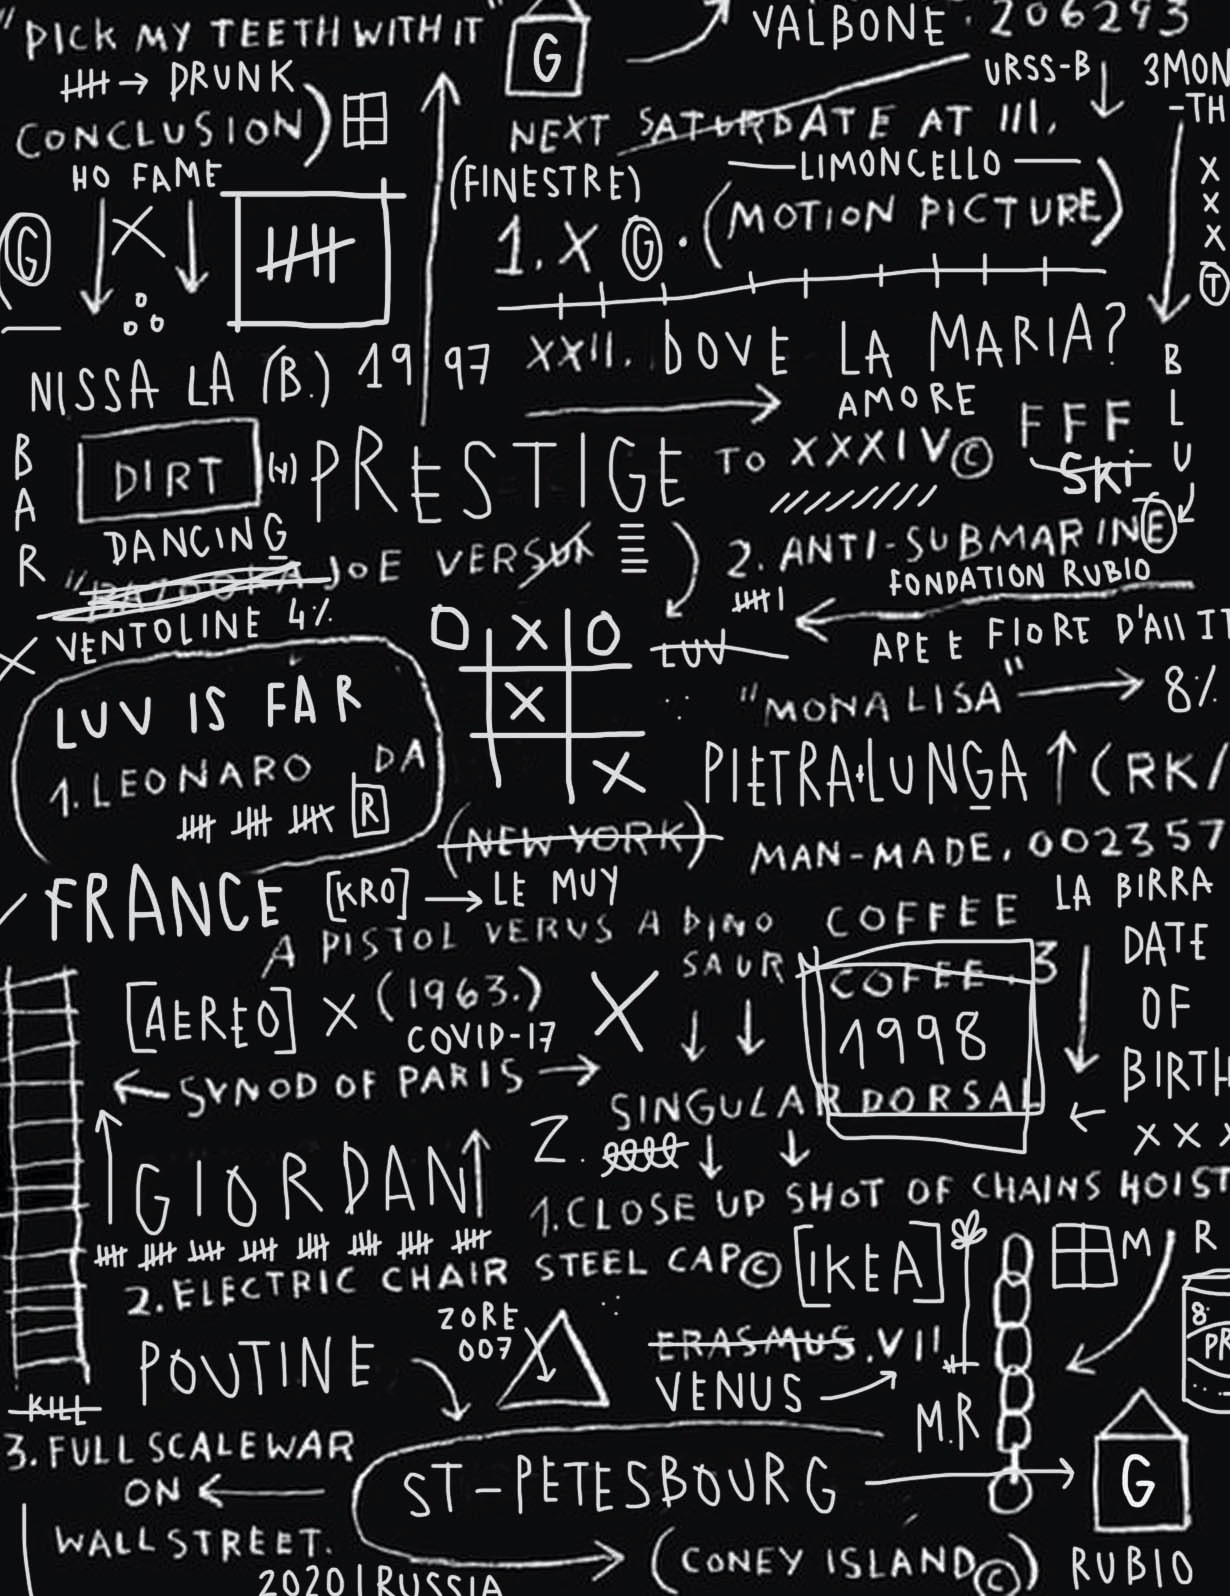 "PICK MY TEETH WITH IT"
G
VALBONE . 206293
DRUNK
URSS-B
3MON
-TH
CONCLUSION)
NEXT SATURDATE AT III.
HO FAME
(FINESTRE)
LIMONCELLO
G
1. X G . (MOTION PICTURE)
X
X
X
T
NISSA LA (B.) 1997
XXII. DOVE LA MARIA?
AMORE
BLU
BAR
DIRT
(H) PRESTIGE TO XXXIV©
FFF
SKi
DANCING
JOE VERSUX
2. ANTI-SUBMARINE
FONDATION RUBIO
VENTOLINE 4%
O X O
X
X
LUV
APE E FIORE D'AII IT
LUV IS FAR
"MONA LISA"
8%
1. LEONARO DA
R
PIETRA.LUNGA
(RK/
(NEW YORK)
MAN-MADE, 002357
FRANCE
[KRO]
LE MUY
COFFEE
LA BIRRA
A PISTOL VERUS A DINO
SAUR
COFEE . 3
DATE
OF
BIRTH
X X X
[AEREO] X (1963.)
X
COVID-17
1998
SYNOD OF PARIS
SINGULAR DORSAL
GIORDANI
2.
1. CLOSE UP SHOT OF CHAINS HOIST
2. ELECTRIC CHAIR STEEL CAP©
[IKEA]
M
R
ZORE
007
8
PR
POUTINE
ERASMUS.VII
VENUS
KILL
M.R
3. FULL SCALE WAR
ON
WALL STREET.
ST-PETESBOURG
G
(CONEY ISLAND©)
RUBIO
2020 | RUSSIA